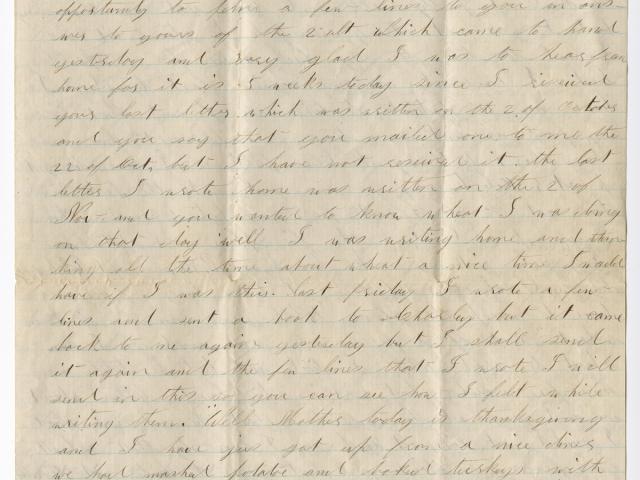 opportunity to pen a few lines to you in ans-
wer to yours of the 2 alt which came to hand
yesterday and very glad I was to hear from
home for it is 5 weeks today since I received
your last letter which was written on the 2 of October
and you say that you mailed one to me the
22 of Oct, but I have not received it. the last
letter I wrote home was written on the 2 of
Nov- and you wanted to know what I was doing
on that day well I was writing home and thin
king all the time about what a nice time I would
have if I was there. last friday I wrote a few
lines and sent a book to Charley but it came
back to me again yesterday but I shall send
it again and the few lines that I wrote I will
send in this so you can see how I felt while
writing them. Well Mother today is thanksgiving
and I have jus got up from a nice diner
we had mashed potatoe and baked turkeys with